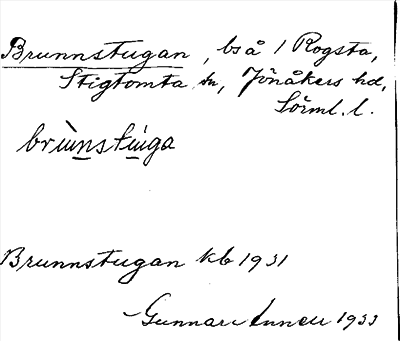 Brunnstugan, bså / Rogsta,
Stigtomta sn, Jönåkers hd,
Sörml. l.
brùnstúga
Brunnstugan kb 1931
Gunnar Anneu 1933